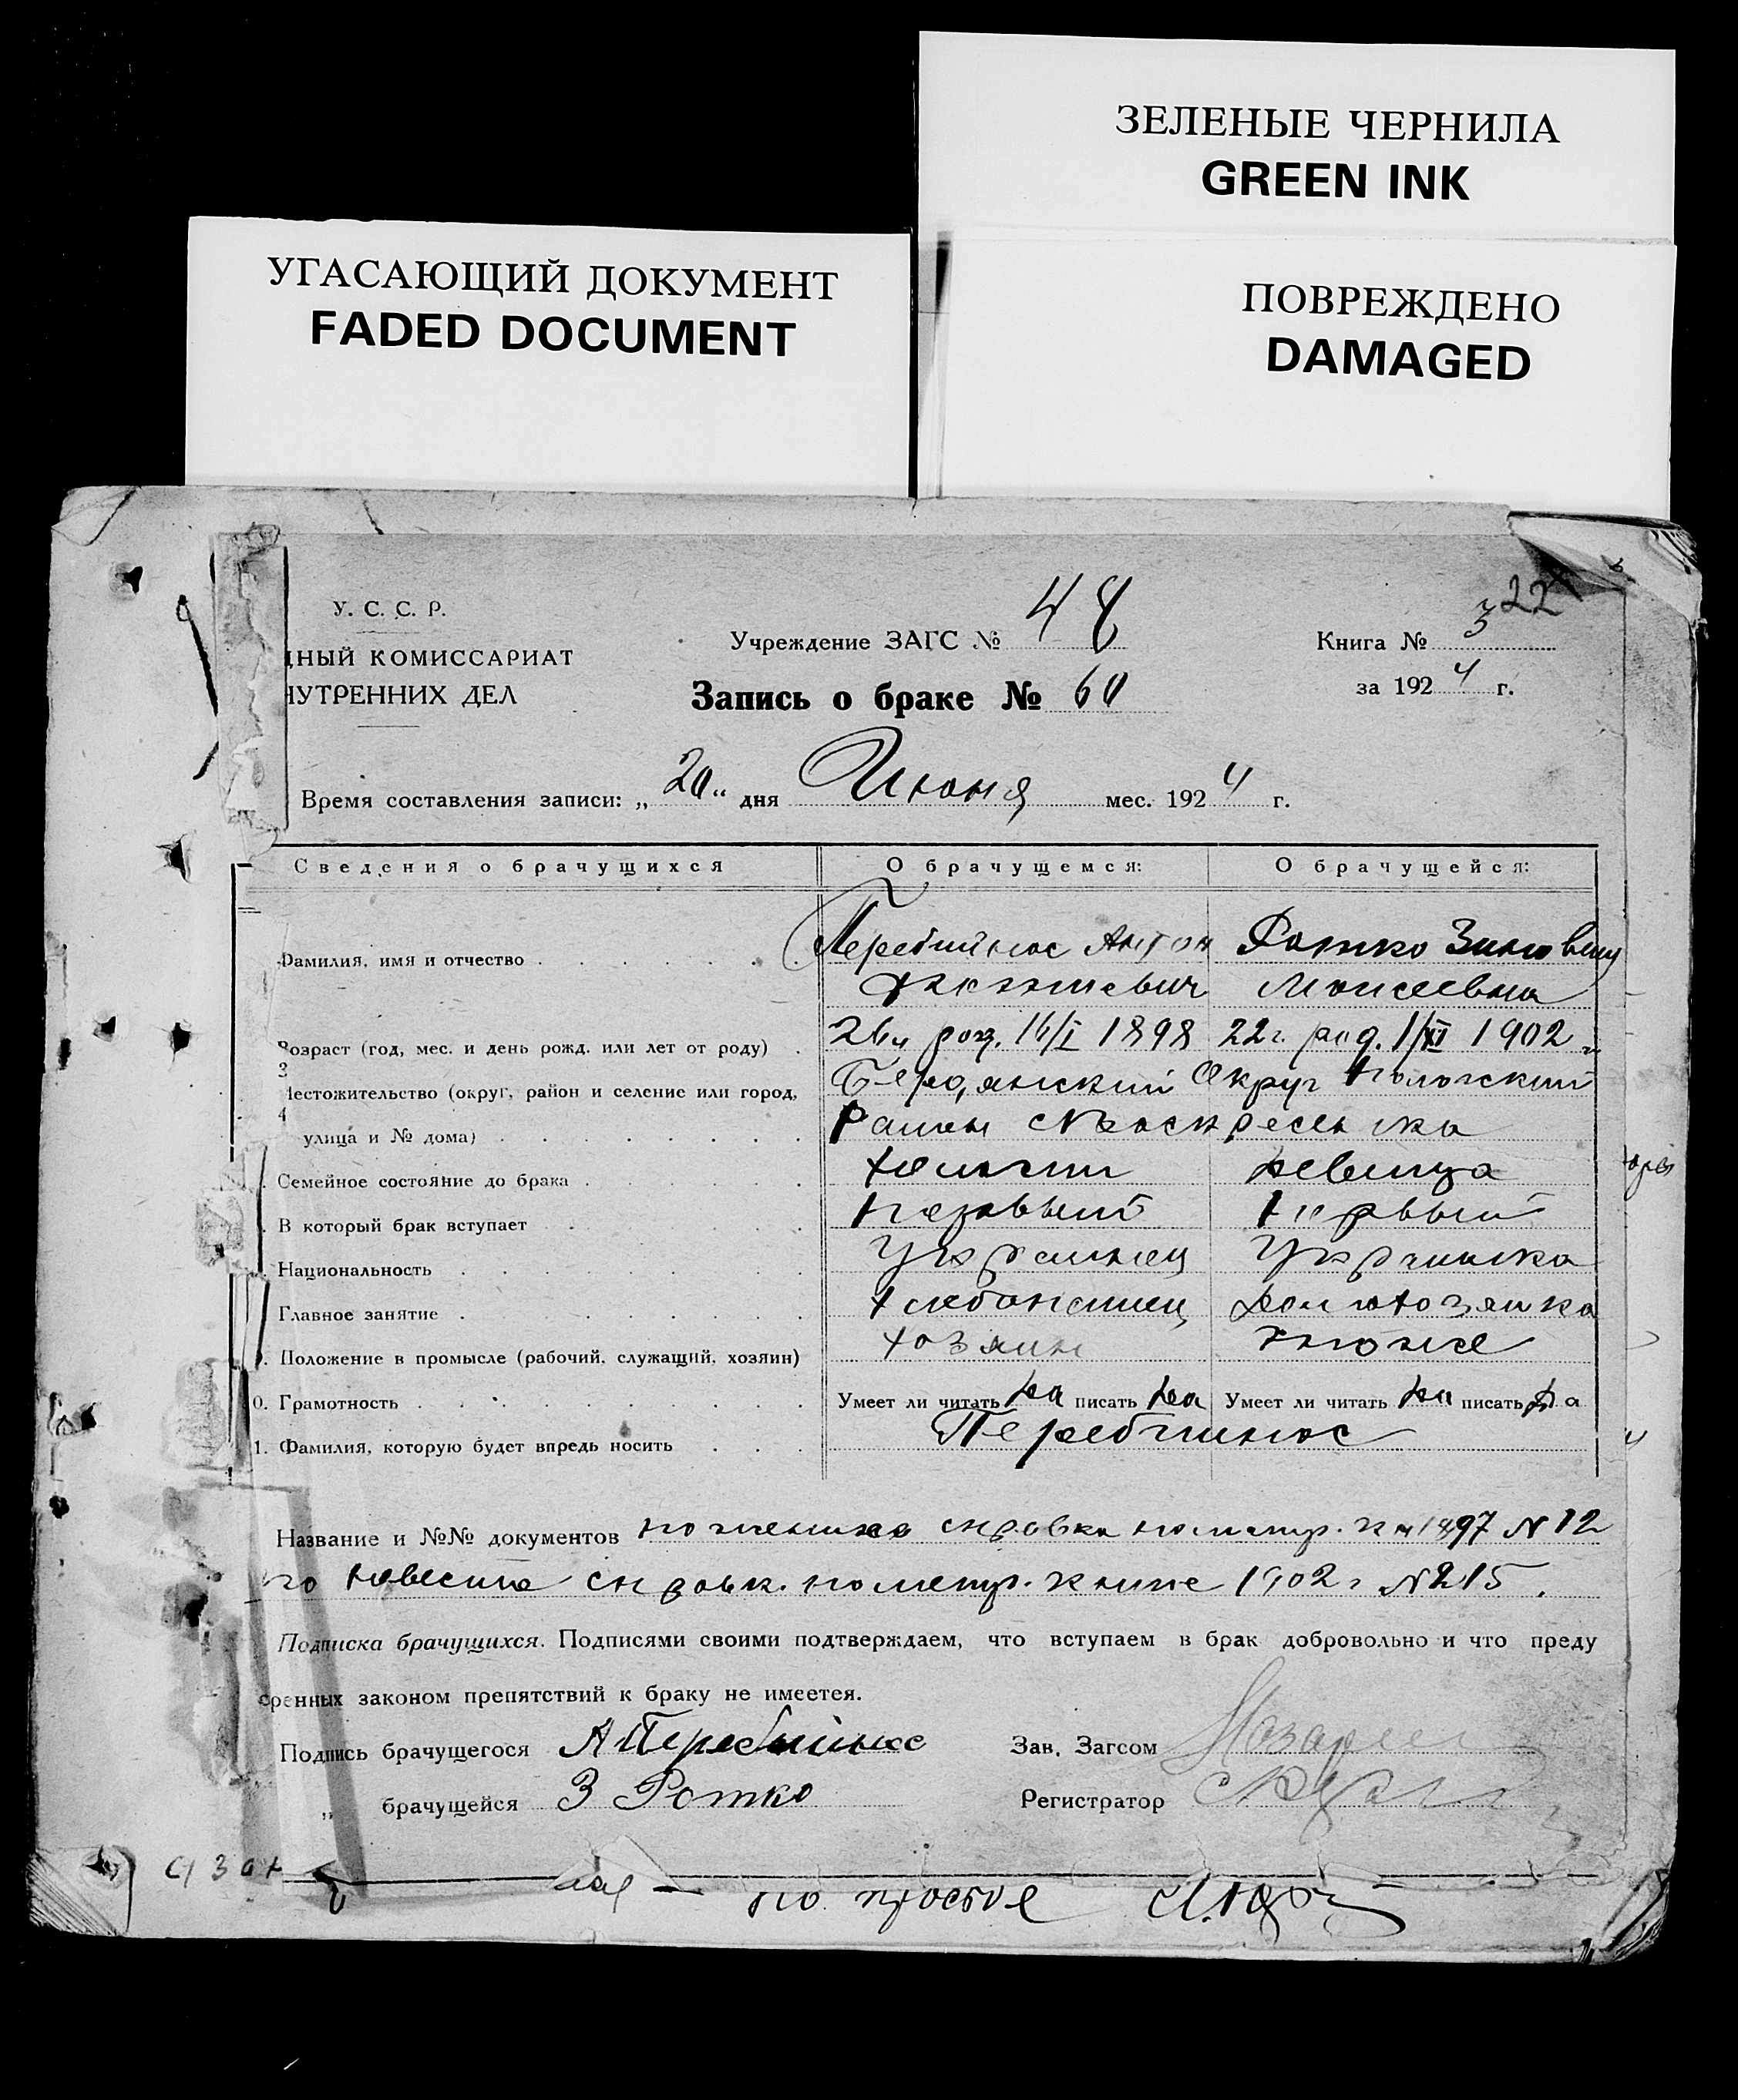 ЗЕЛЕНЫЕ ЧЕРНИЛА
GREEN INK
УГАСАЮЩИЙ ДОКУМЕНТ
FADED DOCUMENT
ПОВРЕЖДЕНО
DAMAGED
У. С. С. Р.
ДНЫЙ КОМИССАРИАТ
НУТРЕННИХ ДЕЛ
Учреждение ЗАГС № 48
Запись о браке № 60
Книга № 3 22
за 1924 г.
Время составления записи: „20" дня Июня мес. 1924 г.
Сведения о брачущихся О брачущемся: О брачущейся:
Фамилия, имя и отчество Перебийнос Антон
Моисеевна
Возраст (год, мес. и день рожд. или лет от роду) 26 рож. 1898 22 г. род. 1/XI 1902 г.
3
Местожительство (округ, район и селение или город, Бердянский Округ Пологский
4
улица и № дома) Район с Воскресенка
Семейное состояние до брака холост девица
В который брак вступает первый первый
Национальность Украинец Украинка
Главное занятие хлебопашец домохозяйка
9. Положение в промысле (рабочий, служащий, хозяин) хозяин
0. Грамотность Умеет ли читать да писать да Умеет ли читать да писать да
1. Фамилия, которую будет впредь носить Перебийнос
Название и №№ документов по жениха справка по метр. 1897 N 12
по невесте справк. по метр. книге 1902 г N 215.
Подписка брачущихся. Подписями своими подтверждаем, что вступаем в брак добровольно и что преду
сренных законом препятствий к браку не имеется.
Подпись брачущегося А Перебийнос Зав. Загсом
„ брачущейся З Ротко Регистратор